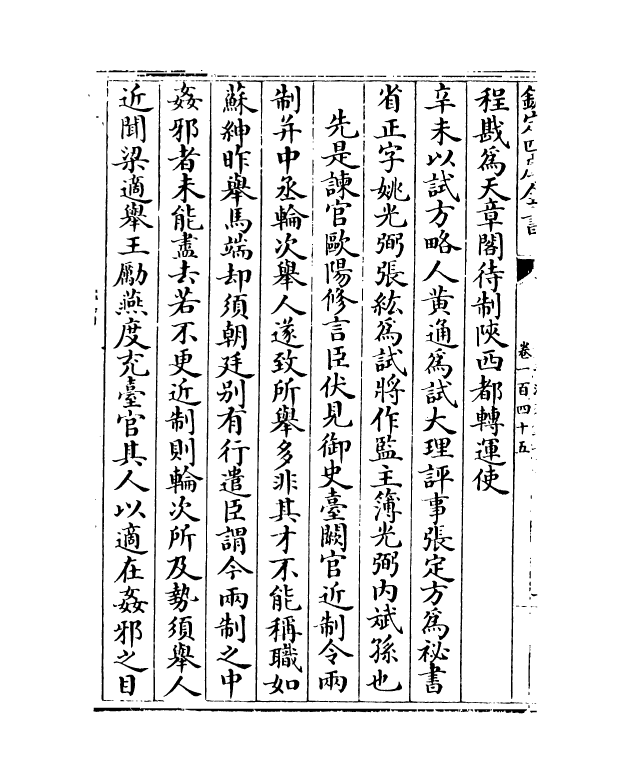 欽定四庫全書
卷一百四十五
程戡為天章閣待制陝西都轉運使
辛未以試方略人黃通為試大理評事張定方為祕書
省正字姚光弼張紘為試將作監主簿光弼内斌孫也
先是諫官歐陽修言臣伏見御史臺闕官近制令兩
制并中丞輪次舉人遂致所舉多非其才不能稱職如
蘇紳昨舉馬端却須朝廷别有行遣臣謂今兩制之中
姦邪者未能盡去若不更近制則輪次所及勢須舉人
近聞梁適舉王勵燕度充臺官其人以適在姦邪之目